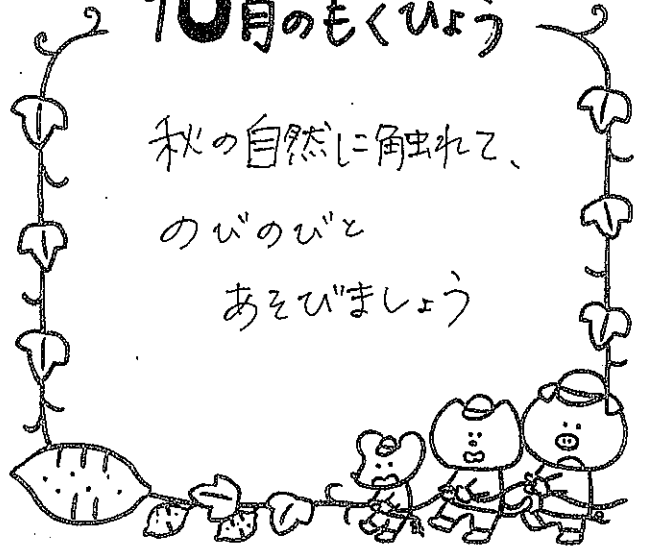 10月のもくひょう
秋の自然に触れて、
のびのびと
あそびましょう